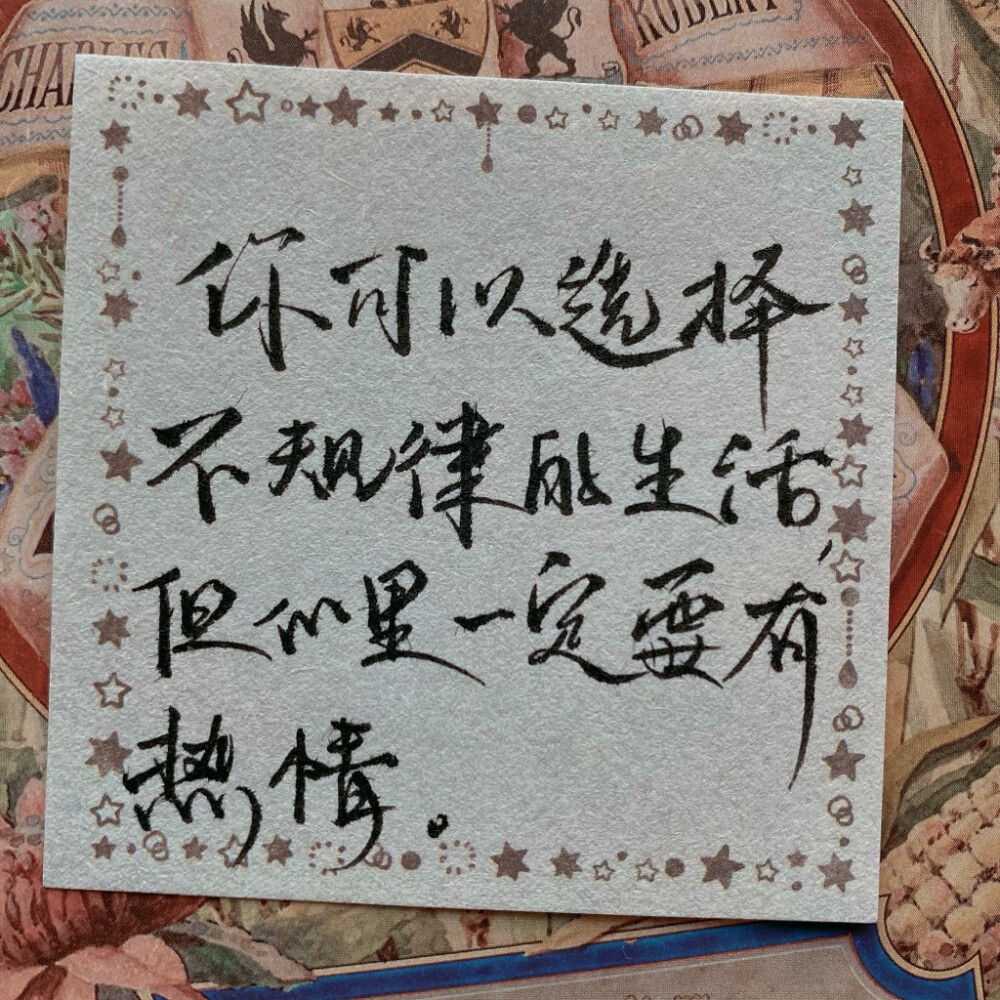 CHARLES
ROBERT
你可以选择
不规律的生活,
但心里一定要有
热情.